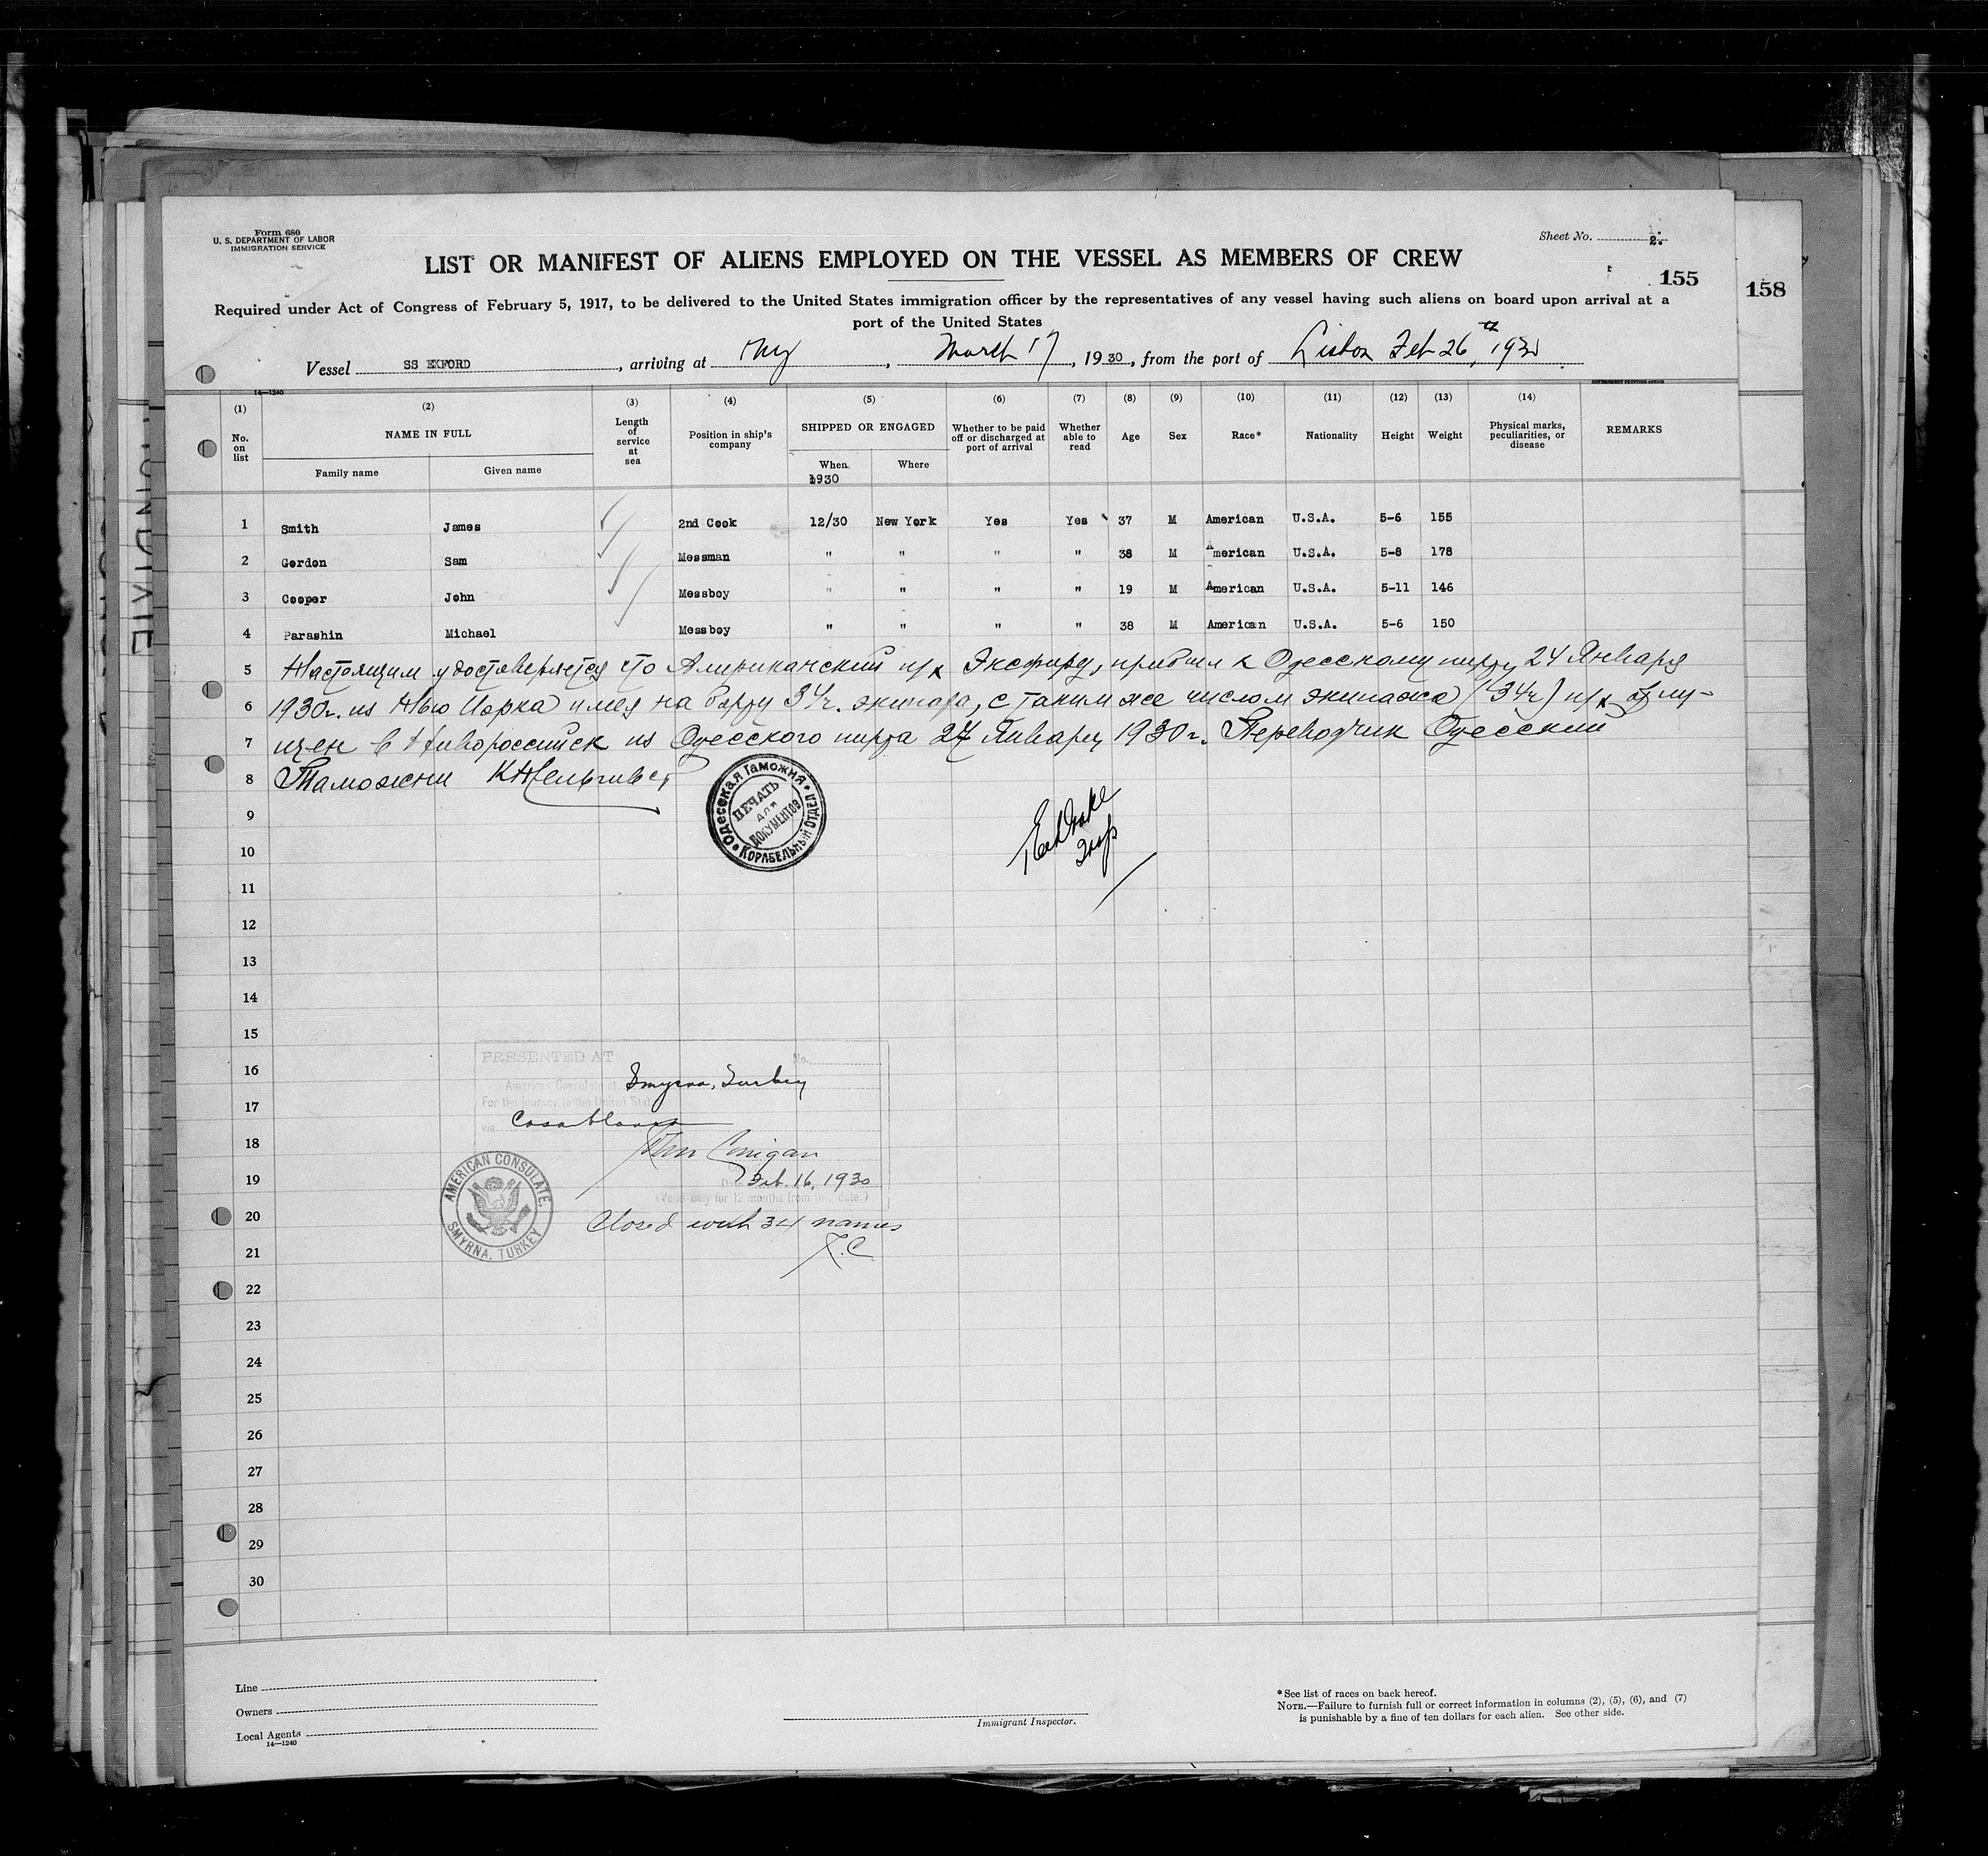 Form 680
U. S. DEPARTMENT OF LABOR
IMMIGRATION SERVICE
Sheet No. 2.
LIST OR MANIFEST OF ALIENS EMPLOYED ON THE VESSEL AS MEMBERS OF CREW
155
158
Required under Act of Congress of February 5, 1917, to be delivered to the United States immigration officer by the representatives of any vessel having such aliens on board upon arrival at a
port of the United States
Vessel SS EXFORD, arriving at NY, March 17, 1930, from the port of Lisbon Feb 26th, 1930
14—1240
GOVERNMENT PRINTING OFFICE
(1) (2) (3) (4) (5) (6) (7) (8) (9) (10) (11) (12) (13) (14)
No. on list NAME IN FULL Length of service at sea Position in ship's company SHIPPED OR ENGAGED Whether to be paid off or discharged at port of arrival Whether able to read Age Sex Race* Nationality Height Weight Physical marks, peculiarities, or disease REMARKS
Family name Given name When Where
1930
1 Smith James 2nd Cook 12/30 New York Yes Yes 37 M American U.S.A. 5-6 155
2 Gordon Sam Messman " " " " 38 M American U.S.A. 5-8 178
3 Cooper John Messboy " " " " 19 M American U.S.A. 5-11 146
4 Parashin Michael Messboy " " " " 38 M American U.S.A. 5-6 150
5 Настоящим удостоверяется что Американский п/х Эксфорд, прибыл к Одесскому порту 24 Января
6 1930г. из Нью Иорка имея на борту 34ч. экипажа, с таким же числом экипажа (34ч) п/х отпу-
7 щен в Новороссийск из Одесского порта 27 Января 1930г. Переводчик Одесский
8 Таможни
Одесская Таможня
Корабельный отдел
Печать
для
документов
9
10
11
12
13
14
15
PRESENTED AT No.
16
American Consulate at Smyrna, Turkey
For the journey to the United States
17
via Casablanca
18
John Corrigan
19
Date Feb. 16, 1930
(Valid only for 12 months from this date.)
AMERICAN CONSULATE,
SMYRNA, TURKEY
20 Closed with 34 names
21 J.C.
22
23
24
25
26
27
28
29
30
Line
Owners
Local Agents
14—1240
Immigrant Inspector.
*See list of races on back hereof.
NOTE.—Failure to furnish full or correct information in columns (2), (5), (6), and (7)
is punishable by a fine of ten dollars for each alien. See other side.